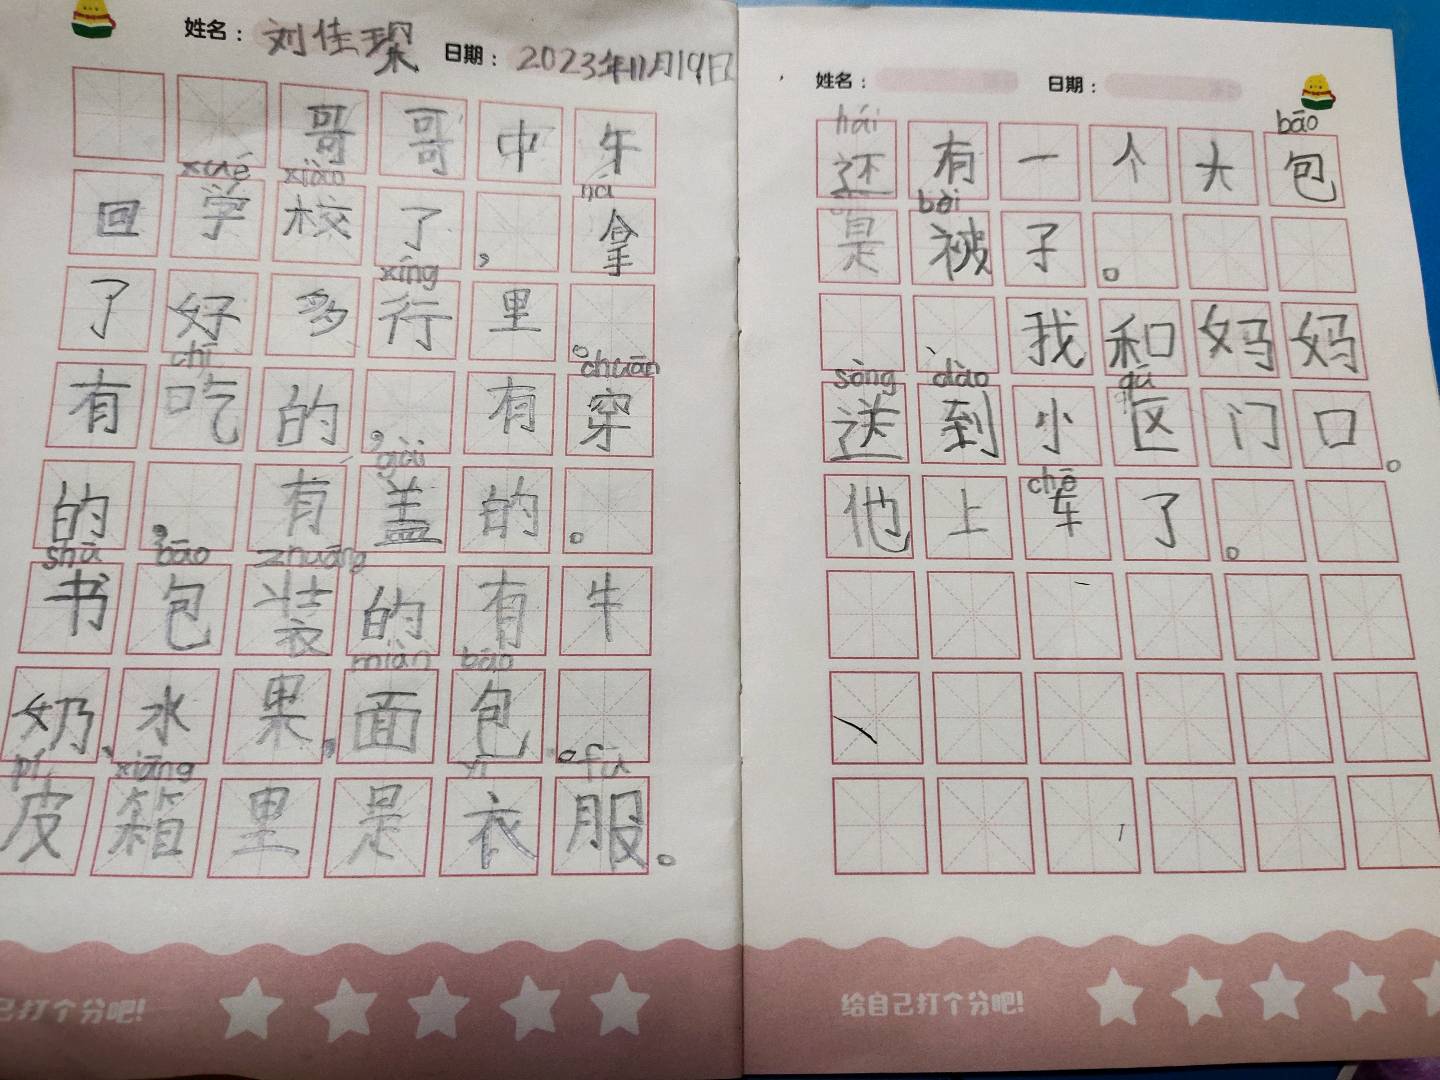 姓名：刘佳琛 日期：2023年11月19日
哥哥中午
xué xiào ná
回学校了，拿
xíng
了好多行里。
chī chuān
有吃的，有穿
gài
的，有盖的。
shū bāo zhuāng
书包装的有牛
miàn bāo
奶、水果，面包。
pí xiāng yī fú
皮箱里是衣服。
己打个分吧!
姓名： 日期：
hái bāo
还有一个大包
bèi
是被子。
我和妈妈
sòng dào qū
送到小区门口。
chē
他上车了。
给自己打个分吧!